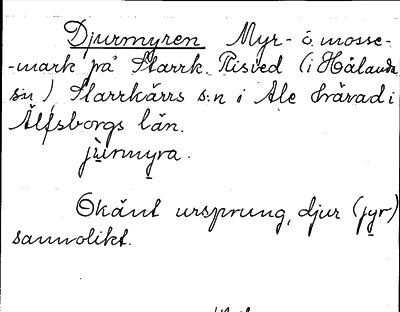 Djurmyren Myr- o. mosse-
-mark på Starrk. Risved (i Hålanda
s:n), Starrkärrs s:n i Ale härad i
Älfsborgs län.
jùrmyra.
Okänt ursprung, djur (jyr)
sannolikt.